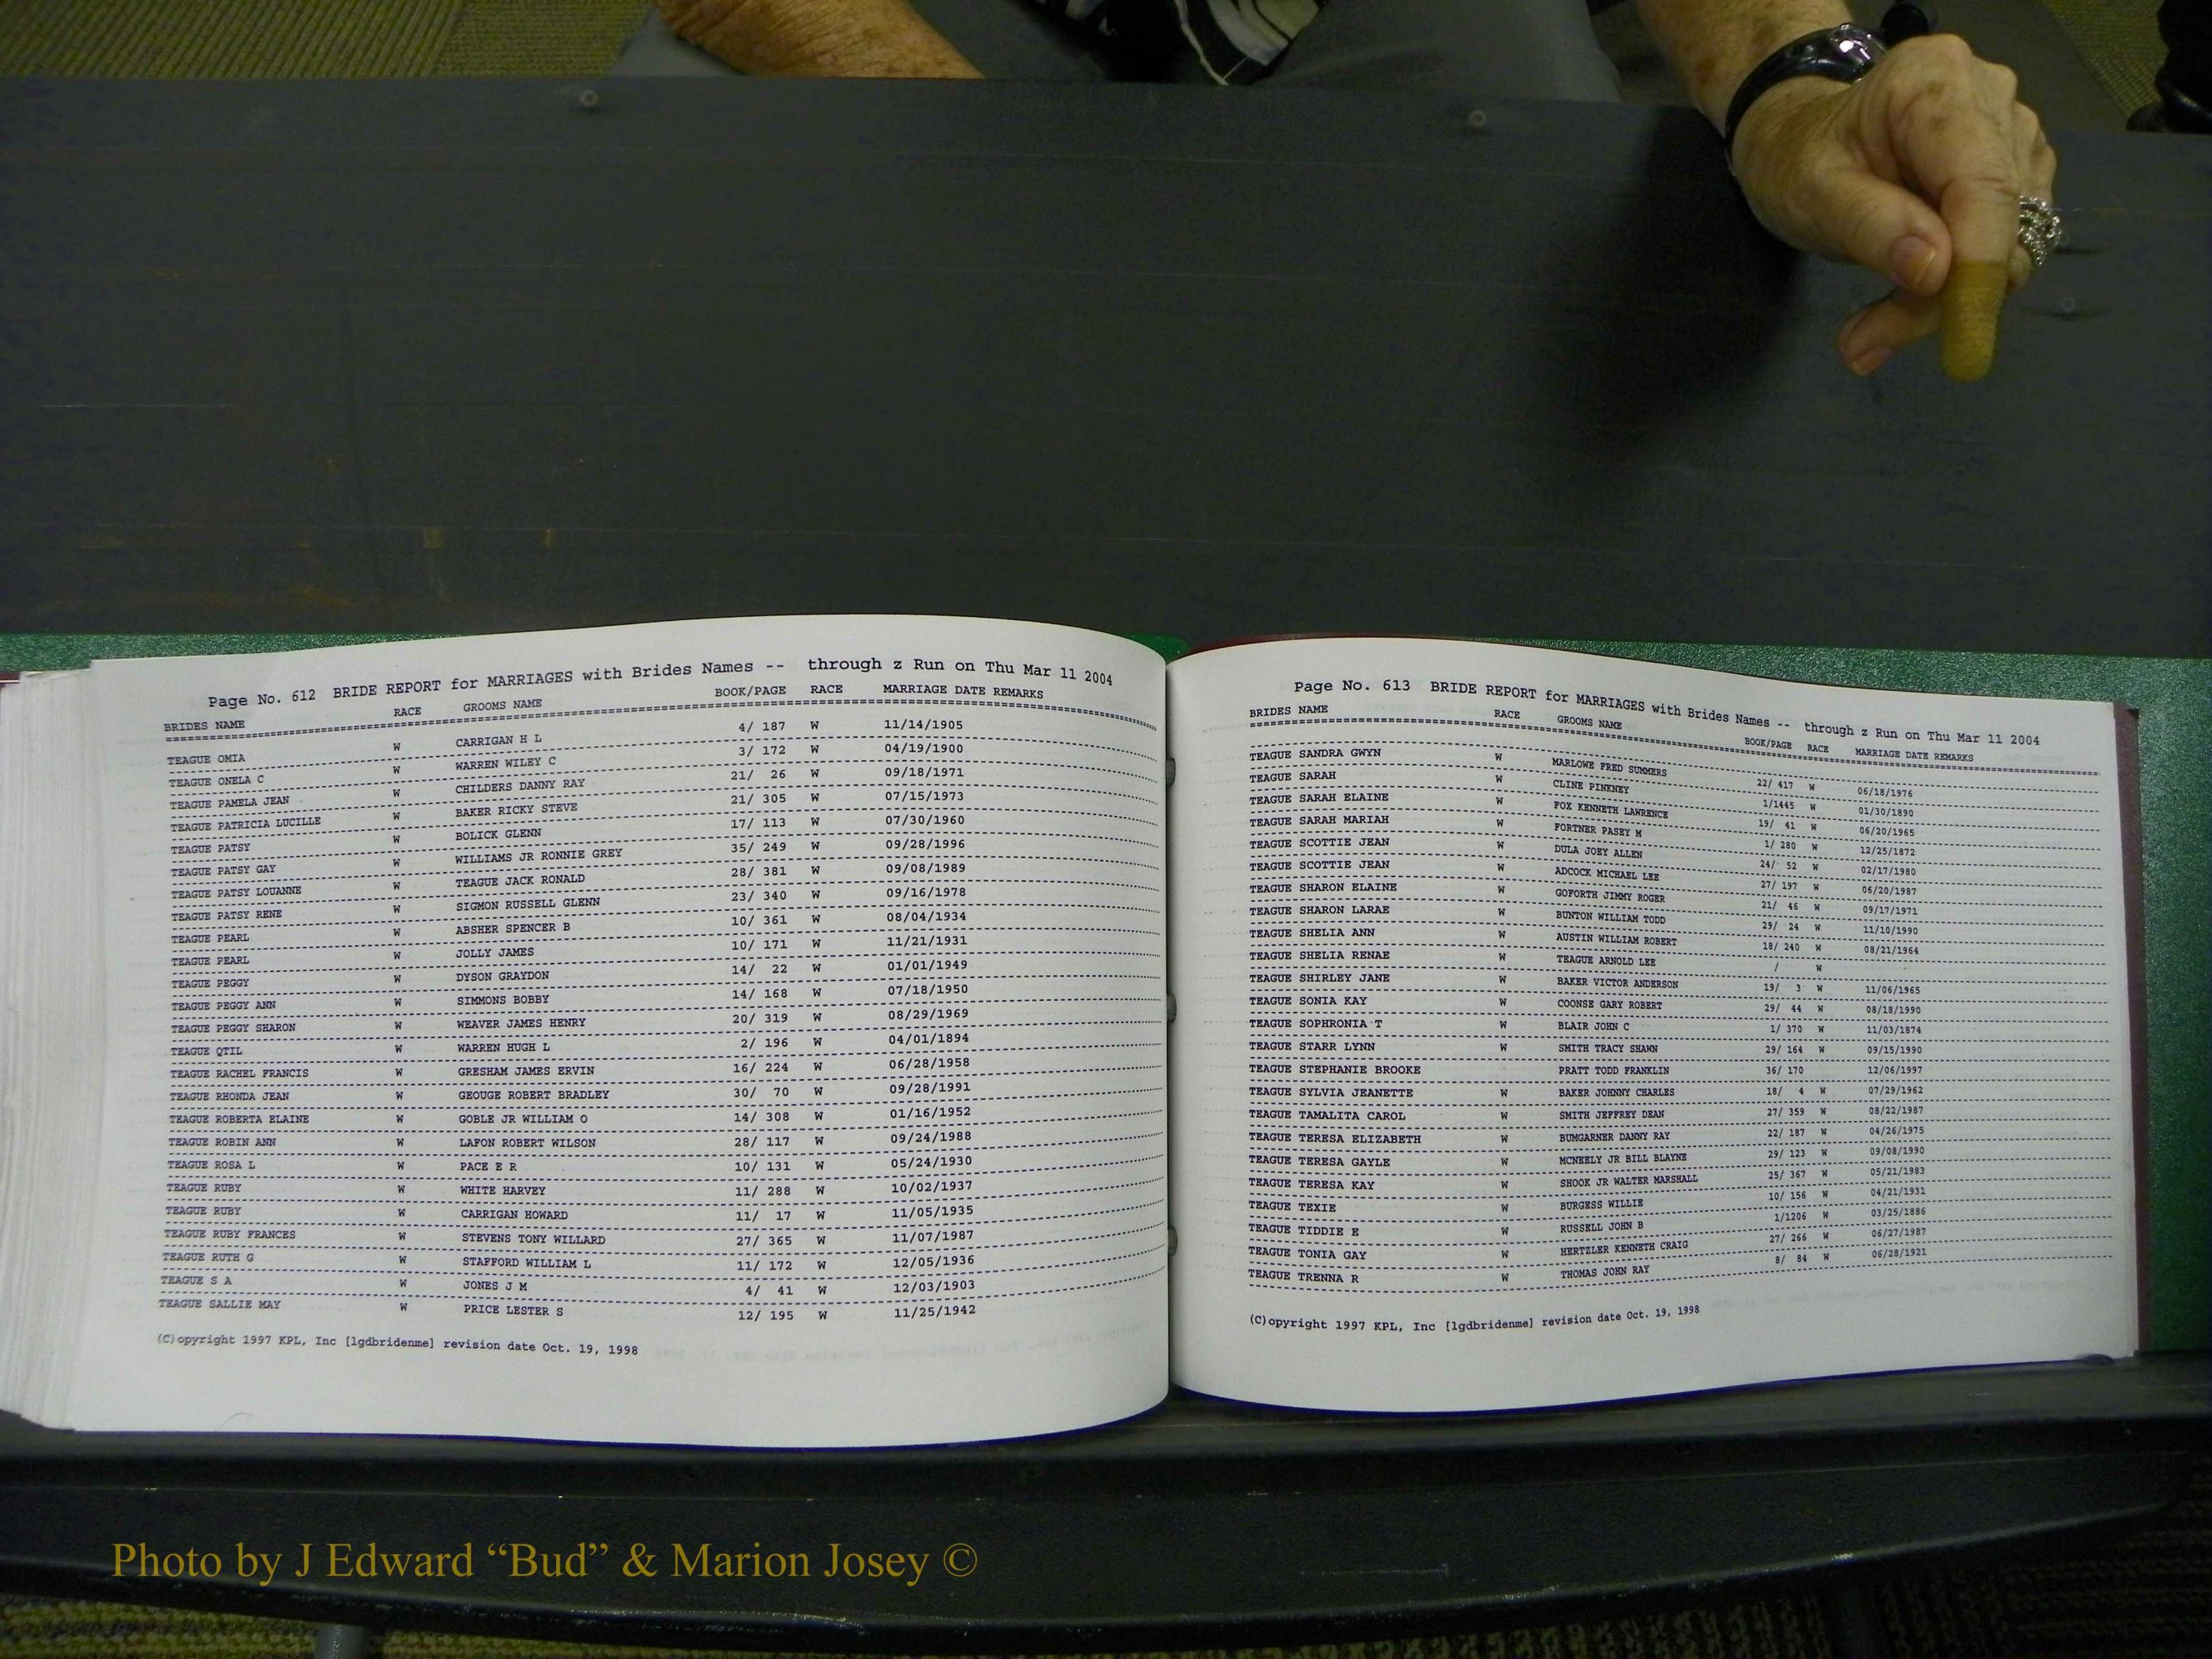 Page No. 612 BRIDE REPORT for MARRIAGES with Brides Names -- through z Run on Thu Mar 11 2004
BRIDES NAME RACE GROOMS NAME BOOK/PAGE RACE MARRIAGE DATE REMARKS
TEAGUE OMIA W CARRIGAN H L 4/ 187 W 11/14/1905
TEAGUE ONELA C W WARREN WILEY C 3/ 172 W 04/19/1900
TEAGUE PAMELA JEAN W CHILDERS DANNY RAY 21/ 26 W 09/18/1971
TEAGUE PATRICIA LUCILLE W BAKER RICKY STEVE 21/ 305 W 07/15/1973
TEAGUE PATSY W BOLICK GLENN 17/ 113 W 07/30/1960
TEAGUE PATSY GAY W WILLIAMS JR RONNIE GREY 35/ 249 W 09/28/1996
TEAGUE PATSY LOUANNE W TEAGUE JACK RONALD 28/ 381 W 09/08/1989
TEAGUE PATSY RENE W SIGMON RUSSELL GLENN 23/ 340 W 09/16/1978
TEAGUE PEARL W ABSHER SPENCER B 10/ 361 W 08/04/1934
TEAGUE PEARL W JOLLY JAMES 10/ 171 W 11/21/1931
TEAGUE PEGGY W DYSON GRAYDON 14/ 22 W 01/01/1949
TEAGUE PEGGY ANN W SIMMONS BOBBY 14/ 168 W 07/18/1950
TEAGUE PEGGY SHARON W WEAVER JAMES HENRY 20/ 319 W 08/29/1969
TEAGUE QTIL W WARREN HUGH L 2/ 196 W 04/01/1894
TEAGUE RACHEL FRANCIS W GRESHAM JAMES ERVIN 16/ 224 W 06/28/1958
TEAGUE RHONDA JEAN W GEOUGE ROBERT BRADLEY 30/ 70 W 09/28/1991
TEAGUE ROBERTA ELAINE W GOBLE JR WILLIAM O 14/ 308 W 01/16/1952
TEAGUE ROBIN ANN W LAFON ROBERT WILSON 28/ 117 W 09/24/1988
TEAGUE ROSA L W PACE E R 10/ 131 W 05/24/1930
TEAGUE RUBY W WHITE HARVEY 11/ 288 W 10/02/1937
TEAGUE RUBY W CARRIGAN HOWARD 11/ 17 W 11/05/1935
TEAGUE RUBY FRANCES W STEVENS TONY WILLARD 27/ 365 W 11/07/1987
TEAGUE RUTH G W STAFFORD WILLIAM L 11/ 172 W 12/05/1936
TEAGUE S A W JONES J M 4/ 41 W 12/03/1903
TEAGUE SALLIE MAY W PRICE LESTER S 12/ 195 W 11/25/1942
(C)opyright 1997 KPL, Inc [lgdbridenme] revision date Oct. 19, 1998
Page No. 613 BRIDE REPORT for MARRIAGES with Brides Names -- through z Run on Thu Mar 11 2004
BRIDES NAME RACE GROOMS NAME BOOK/PAGE RACE MARRIAGE DATE REMARKS
TEAGUE SANDRA GWYN W MARLOWE FRED SUMMERS 22/ 417 W 06/18/1976
TEAGUE SARAH W CLINE PINKNEY 1/1445 W 01/30/1890
TEAGUE SARAH ELAINE W FOX KENNETH LAWRENCE 19/ 41 W 06/20/1965
TEAGUE SARAH MARIAH W FORTNER PASEY M 1/ 280 W 12/25/1872
TEAGUE SCOTTIE JEAN W DULA JOEY ALLEN 24/ 52 W 02/17/1980
TEAGUE SCOTTIE JEAN W ADCOCK MICHAEL LEE 27/ 197 W 06/20/1987
TEAGUE SHARON ELAINE W GOFORTH JIMMY ROGER 21/ 46 W 09/17/1971
TEAGUE SHARON LARAE W BUNTON WILLIAM TODD 29/ 24 W 11/10/1990
TEAGUE SHELIA ANN W AUSTIN WILLIAM ROBERT 18/ 240 W 08/21/1964
TEAGUE SHELIA RENAE W TEAGUE ARNOLD LEE / W
TEAGUE SHIRLEY JANE W BAKER VICTOR ANDERSON 19/ 3 W 11/06/1965
TEAGUE SONIA KAY W COONSE GARY ROBERT 29/ 44 W 08/18/1990
TEAGUE SOPHRONIA T W BLAIR JOHN C 1/ 370 W 11/03/1874
TEAGUE STARR LYNN W SMITH TRACY SHAWN 29/ 164 W 09/15/1990
TEAGUE STEPHANIE BROOKE PRATT TODD FRANKLIN 36/ 170 12/06/1997
TEAGUE SYLVIA JEANETTE W BAKER JOHNNY CHARLES 18/ 4 W 07/29/1962
TEAGUE TAMALITA CAROL W SMITH JEFFREY DEAN 27/ 359 W 08/22/1987
TEAGUE TERESA ELIZABETH W BUMGARNER DANNY RAY 22/ 187 W 04/26/1975
TEAGUE TERESA GAYLE W MCNEELY JR BILL BLAYNE 29/ 123 W 09/08/1990
TEAGUE TERESA KAY W SHOOK JR WALTER MARSHALL 25/ 367 W 05/21/1983
TEAGUE TEXIE W BURGESS WILLIE 10/ 156 W 04/21/1931
TEAGUE TIDDIE E W RUSSELL JOHN B 1/1206 W 03/25/1886
TEAGUE TONIA GAY W HERTZLER KENNETH CRAIG 27/ 266 W 06/27/1987
TEAGUE TRENNA R W THOMAS JOHN RAY 8/ 84 W 06/28/1921
(C)opyright 1997 KPL, Inc [lgdbridenme] revision date Oct. 19, 1998
Photo by J Edward “Bud” & Marion Josey ©